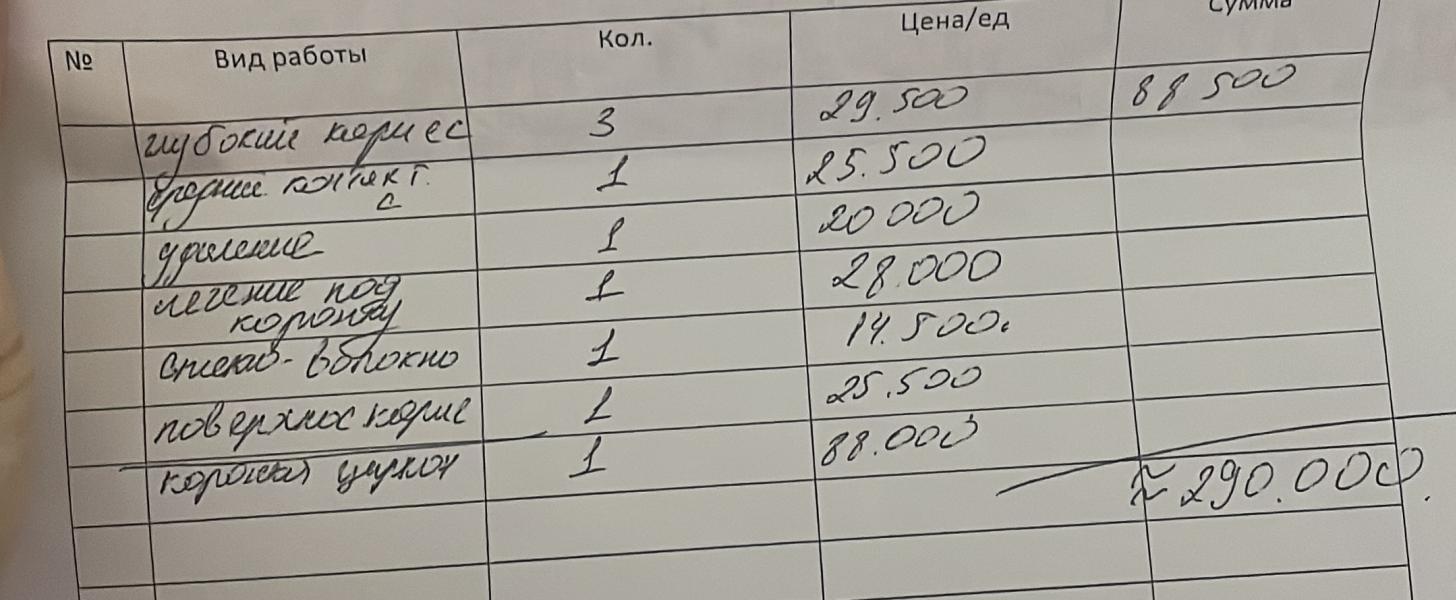 № Вид работы Кол. Цена/ед Сумма
глубокий кариес 3 29.500 88 500
средний контакт. 1 25.500
удаление 1 20 000
лечение под 1 28.000
коронку
стекло-волокно 1 14.500.
поверхнос карие 1 25.500
коронка циркон 1 88.000
≈ 290.000.